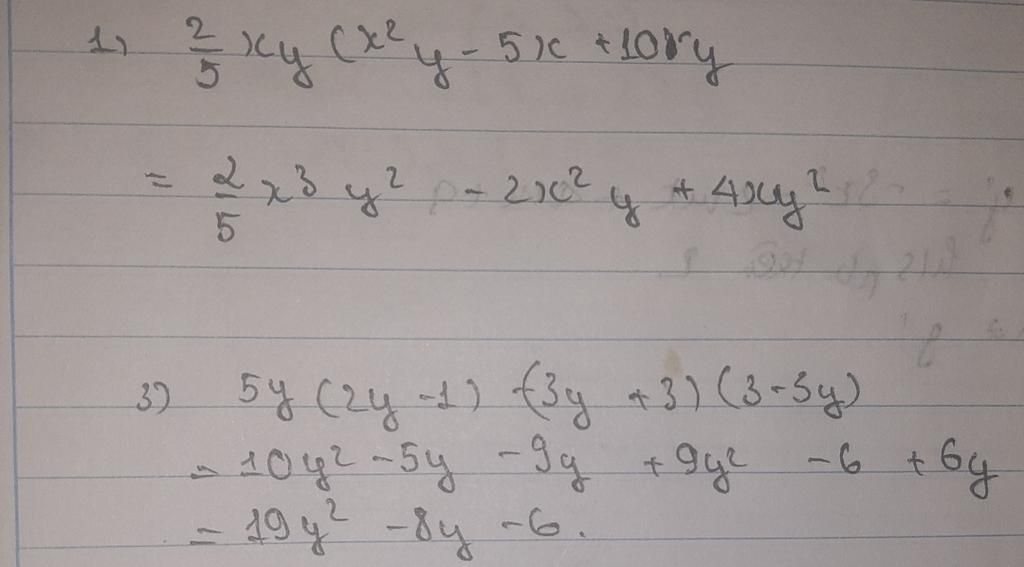 1) 2/5 xy (x² y - 5x + 10 y
= 2/5 x³ y² - 2x² y + 4xy²
3) 5y (2y - 1) - (3y + 3) (3 - 3y)
= 10y² - 5y - 9y + 9y² - 6 + 6y
= 19y² - 8y - 6.